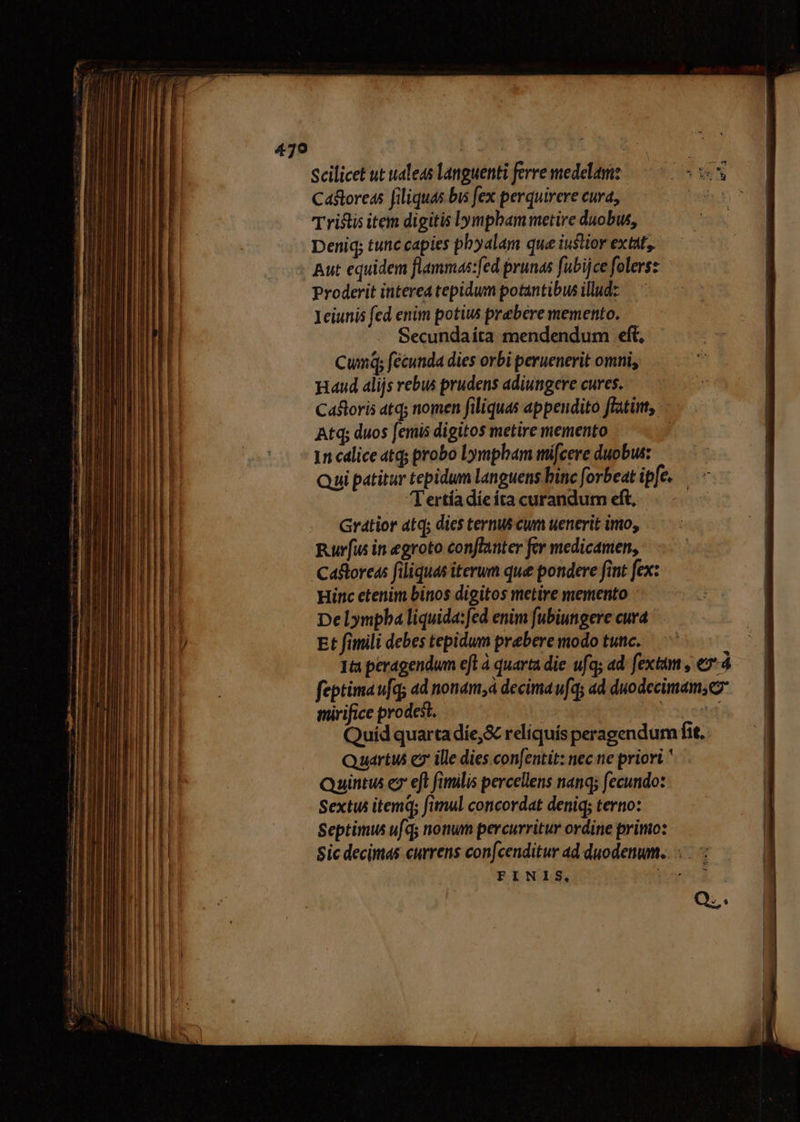 470
Scilicet ut ualeas languenti ferre medelam:
Castoreas siliquas bis sex perquirere cura,
Tristis item digitis lympham metire duobus,
Deniq; tunc capies phyalam quæ iustior extat,
Aut equidem flammas: sed prunas subijce solers:
Proderit interea tepidum potantibus illud:
Ieiunis sed enim potius præbere memento.
Secunda íta mendendum est,
Cumq́; secunda dies orbi peruenerit omni,
Haud alijs rebus prudens adiungere cures.
Castoris atq; nomen siliquas appendito statim,
Atq; duos semis digitos metire memento
In calice atq; probo lympham miscere duobus:
Qui patitur tepidum languens hinc sorbeat ipse.
Tertía díe íta curandum est,
Gratior atq; dies ternus cum uenerit imo,
Rursus in ægroto constanter fer medicamen,
Castoreas siliquas iterum quæ pondere sint sex:
Hinc etenim binos digitos metire memento
De lympha liquida: sed enim subiungere cura
Et simili debes tepidum præbere modo tunc.
Ita peragendum est à quarta die usq; ad sextam, & à
septima usq; ad nonam, à decima usq; ad duodecimam, &
mirifice prodest.
Quíd quarta díe, & relíquís peragendum fit.
Quartus & ille dies consentit: nec ne priori
Quintus & est similis percellens nanq; secundo:
Sextus itemq́; simul concordat deniq; terno:
Septimus usq; nonum percurritur ordine primo:
Sic decimas currens conscenditur ad duodenum.
FINIS.
Q.